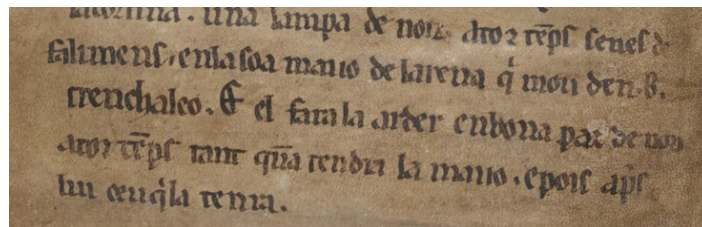 una lampa de nou. a totz tēps senes de
falimens. en la soa maiio de la reua q̇ mou den .B.
trenchaleo. Et el fara la arder en bona paz de nou
a totz tēps tant qūa tendra la maiio. e pois ap̄s
lui ceuq̇ la tenra.